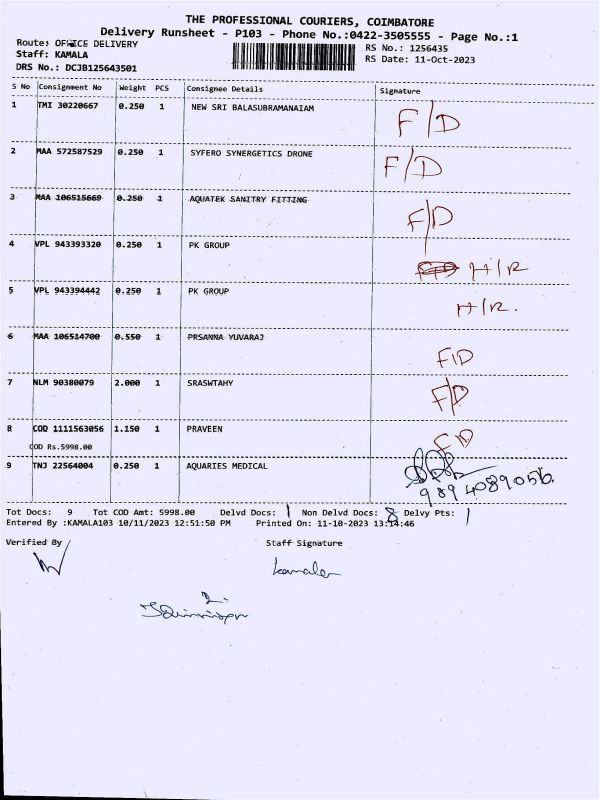 THE PROFESSIONAL COURIERS, COIMBATORE
Delivery Runsheet - P103 - Phone No.:0422-3505555 - Page No.:1
Route: OFFICE DELIVERY
RS No.: 1256435
Staff: KAMALA
RS Date: 11-Oct-2023
DRS No.: DCJB125643501
S No Consignment No Weight PCS Consignee Details Signature
1 TMI 30220667 0.250 1 NEW SRI BALASUBRAMANAIAM F/D
2 MAA 572587529 0.250 1 SYFERO SYNERGETICS DRONE F/D
3 MAA 106515669 0.250 1 AQUATEK SANITRY FITTING F/D
4 VPL 943393320 0.250 1 PK GROUP H/R
5 VPL 943394442 0.250 1 PK GROUP H/R.
6 MAA 106514700 0.550 1 PRSANNA YUVARAJ F/D
7 NLM 90380079 2.000 1 SRASWTAHY F/D
8 COD 1111563056 1.150 1 PRAVEEN F/D
COD Rs.5998.00
9 TNJ 22564004 0.250 1 AQUARIES MEDICAL
9894089056.
Tot Docs: 9 Tot COD Amt: 5998.00 Delvd Docs: 1 Non Delvd Docs: 8 Delvy Pts: 1
Entered By :KAMALA103 10/11/2023 12:51:50 PM Printed On: 11-10-2023 13:14:46
Verified By Staff Signature
kamala